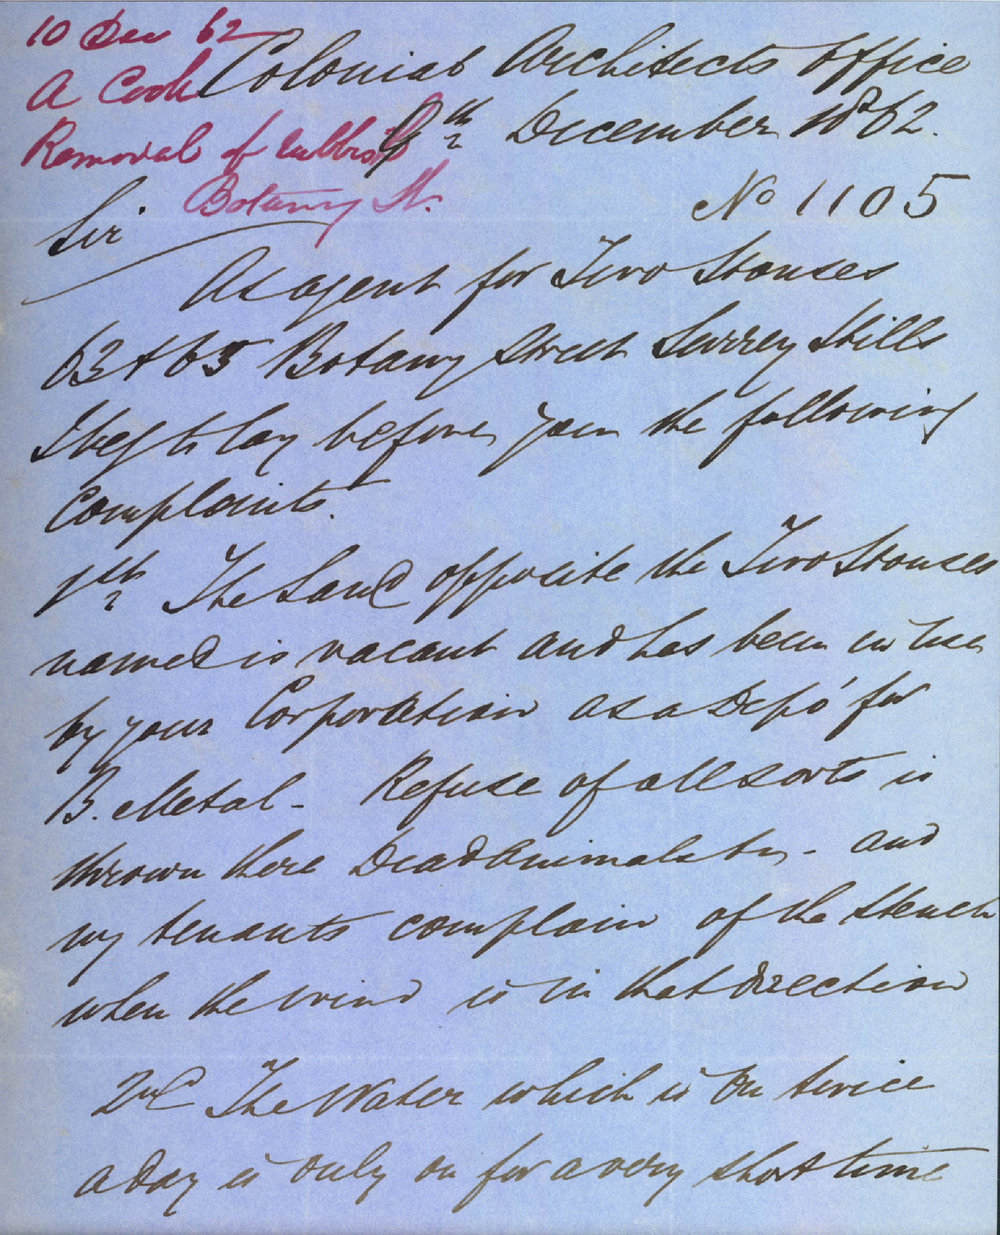 10 Dec 62
A Cook
Removal of rubbish
Botany St.
Colonial Architects Office
9th December 1862.
No 1105
Sir
As agent for Two Houses
63 & 65 Botany Street Surrey Hills
I beg to lay before you the following
Complaints.
1th The Land opposite the Two Houses
named is vacant and has been in use
by your Corporation as a Depó for
B. Metal - Refuse of all sorts is
thrown there Dead Animals &c - and
my tenants complain of the stench
when the wind is in that direction
2nd The Water which is on twice
a day is only on for a very short time